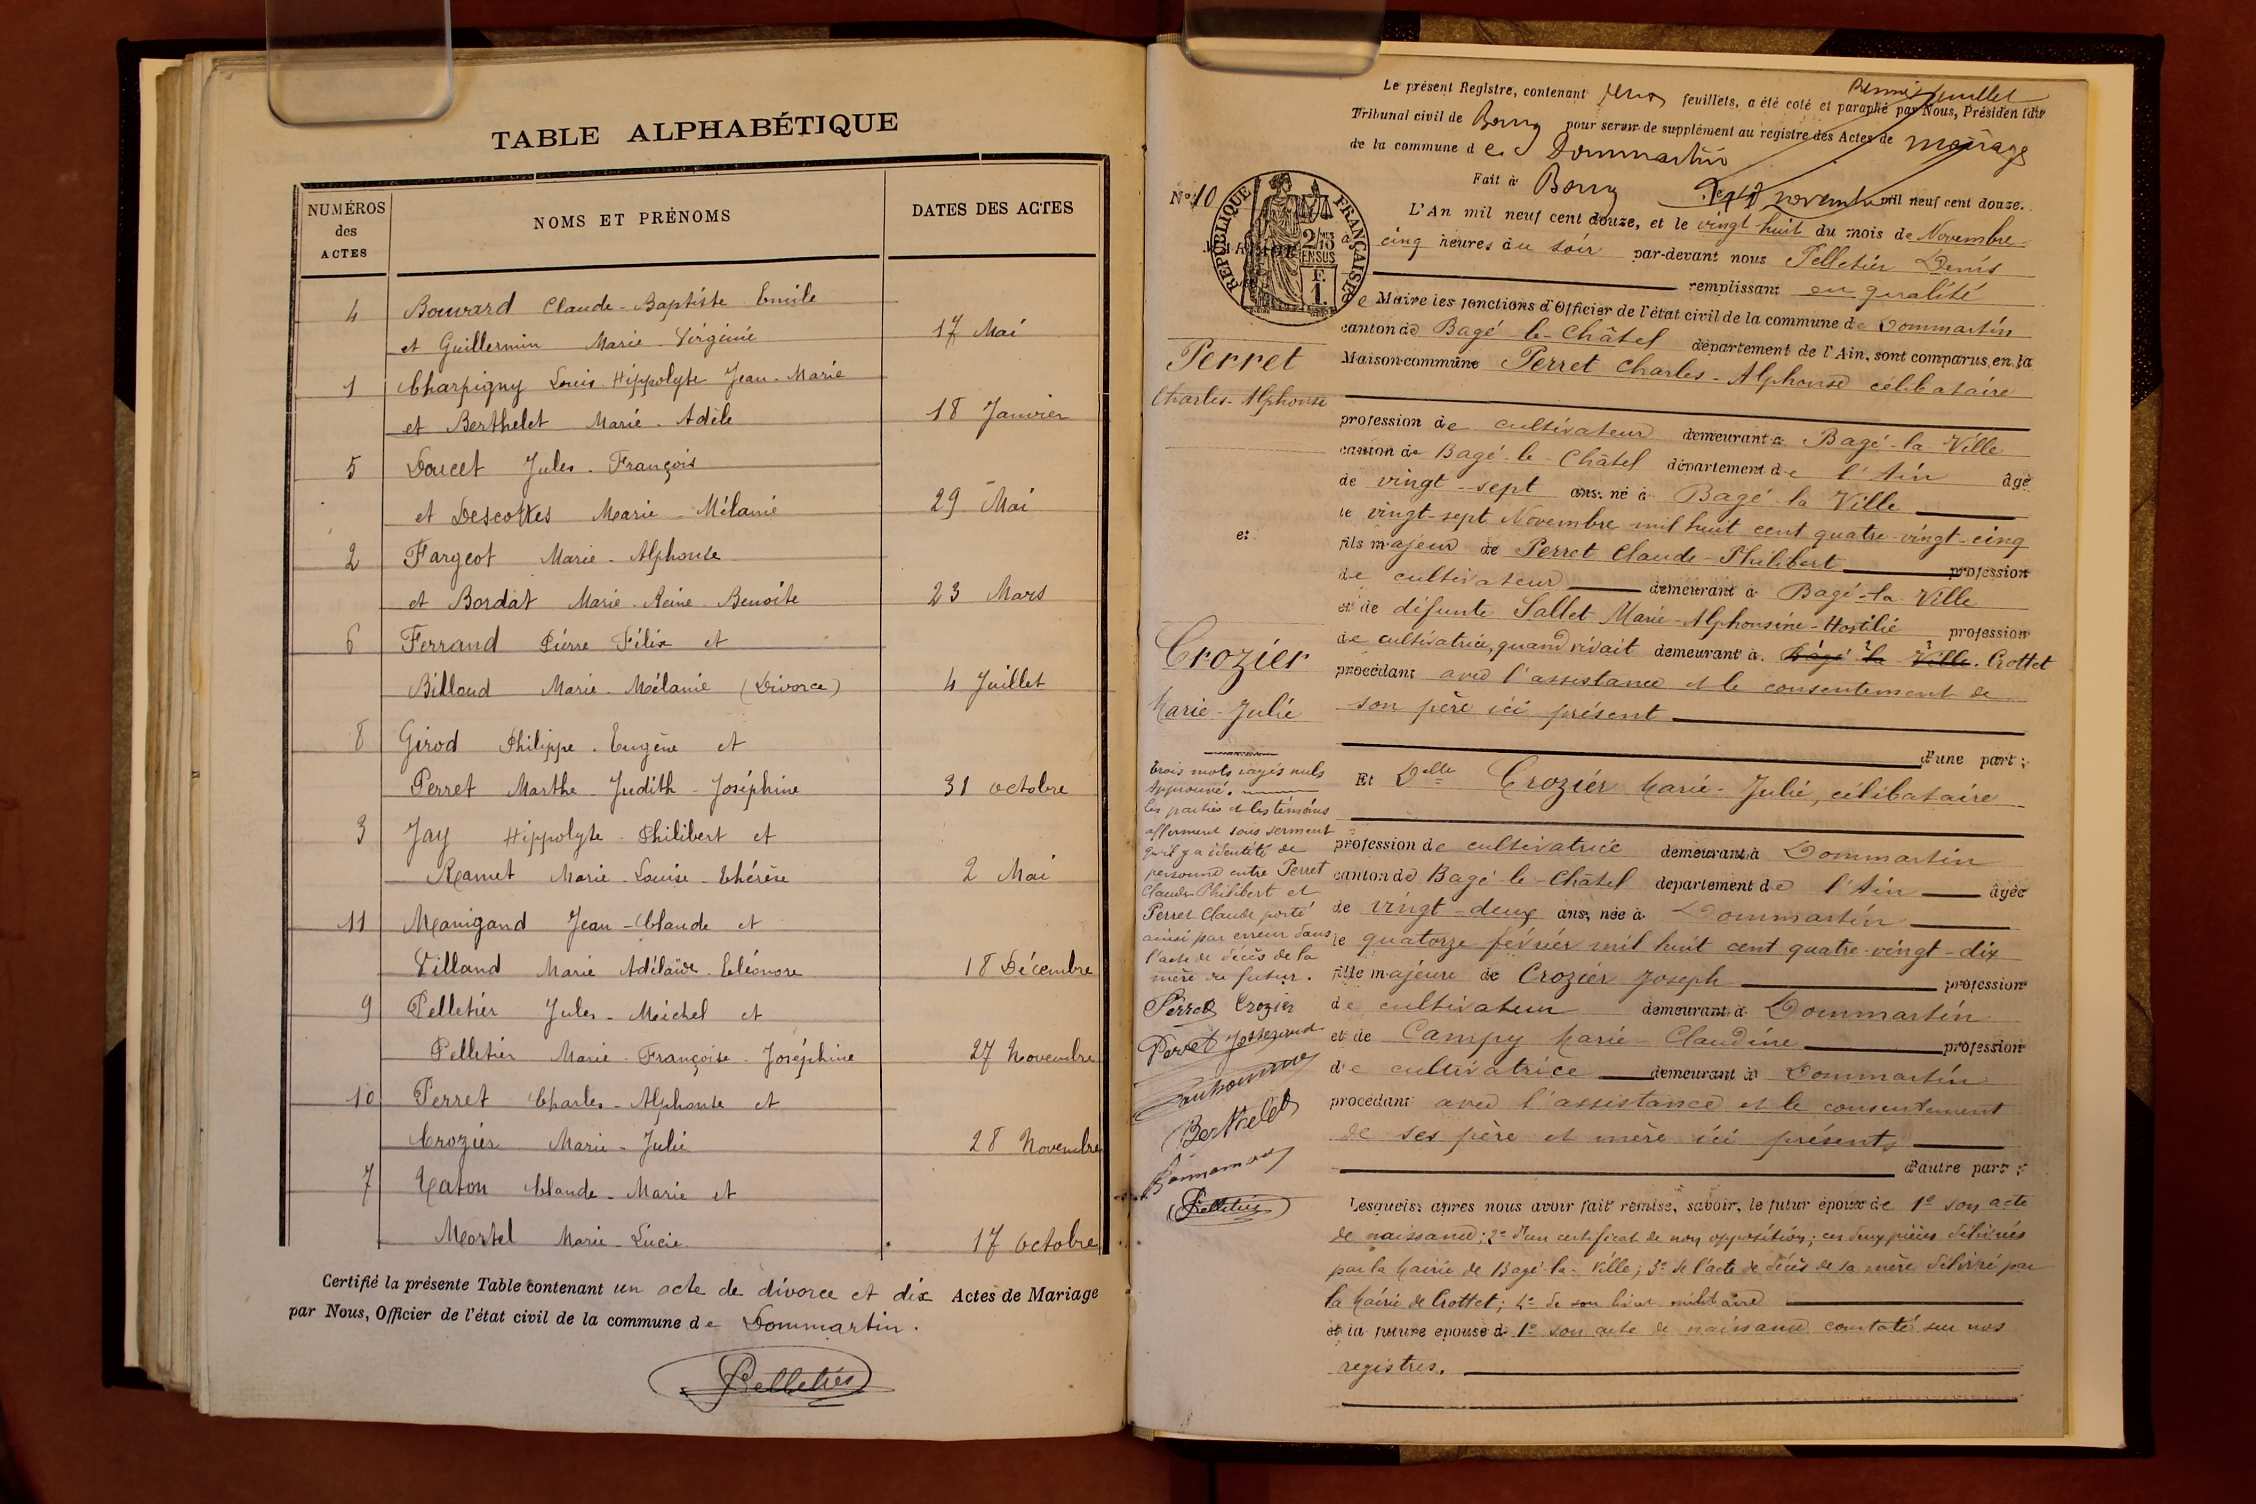 TABLE ALPHABÉTIQUE
NUMÉROS des ACTES
NOMS ET PRÉNOMS
DATES DES ACTES
4 Bouvard Claude-Baptiste Emile
et Guillermin Marie-Virginie 17 Mai
1 Charpigny Louis-Hippolyte Jean-Marie
et Berthelet Marie-Adèle 18 Janvier
5 Doucet Jules-François
et Descottes Marie-Mélanie 29 Mai
2 Fargeot Marie-Alphonse
et Bordat Marie-Reine-Benoite 23 Mars
6 Ferrand Pierre Félix et
Billoud Marie-Mélanie (Divorce) 4 Juillet
8 Girod Philippe-Eugène et
Perret Marthe-Judith-Joséphine 31 octobre
3 Jay Hippolyte-Philibert et
Ramet Marie-Louise-Thérèse 2 Mai
11 Manigand Jean-Claude et
Villand Marie Adélaïde-Eléonore 18 Décembre
9 Pelletier Jules-Michel et
Pelletier Marie-Françoise-Joséphine 27 Novembre
10 Perret Charles-Alphonse et
Crozier Marie-Julie 28 Novembre
7 Taton Claude-Marie et
Mortel Marie-Lucie 17 Octobre
Certifié la présente Table contenant un acte de divorce et dix Actes de Mariage
par Nous, Officier de l'état civil de la commune de Dommartin.
Pelletier
Premier feuillet
Le présent Registre, contenant feuillets, a été coté et paraphé par Nous, Président du
Tribunal civil de Bourg pour servir de supplément au registre des Actes de mariage
de la commune de Dommartin
Fait à Bourg le novembre mil neuf cent douze.
N° 10
RÉPUBLIQUE FRANÇAISE
2/10 EN SUS
F. 1.
L'An mil neuf cent douze, et le vingt-huit du mois de Novembre
à cinq heures du soir par-devant nous Pelletier Denis
remplissant en qualité
de Maire les fonctions d'Officier de l'état civil de la commune de Dommartin
canton de Bagé-le-Châtel département de l'Ain, sont comparus en la
Maison commune Perret Charles-Alphonse célibataire
profession de cultivateur demeurant à Bagé-la-Ville
canton de Bagé-le-Châtel département de l'Ain âgé
de vingt-sept ans, né à Bagé-la Ville
le vingt-sept Novembre mil huit cent quatre-vingt-cinq
fils majeur de Perret Claude-Philibert profession
de cultivateur demeurant à Bagé-la-Ville
et de défunte Sallet Marie-Alphonsine-Hostilie profession
de cultivatrice, quand vivait demeurant à Bagé la Ville. Crottet
procédant avec l'assistance et le consentement de
son père ici présent
d'une part;
Et Delle Crozier Marie-Julie, célibataire
profession de cultivatrice demeurant à Dommartin
canton de Bagé-le-Châtel département de l'Ain âgée
de vingt-deux ans, née à Dommartin
le quatorze février mil huit cent quatre-vingt-dix
fille majeure de Crozier Joseph profession
de cultivateur demeurant à Dommartin
et de Campy Marie-Claudine profession
de cultivatrice demeurant à Dommartin
procédant avec l'assistance et le consentement
de ses père et mère ici présents
d'autre part;
Lesquels, après nous avoir fait remise, savoir, le futur époux de 1° son acte
de naissance; 2° d'un certificat de non opposition; ces deux pièces délivrées
par la Mairie de Bagé-la-Ville; 3° de l'acte de décès de sa mère délivré par
la Mairie de Crottet; 4° de son livret militaire
et la future épouse de 1° son acte de naissance constaté sur nos
registres.
Perret
Charles-Alphonse
et
Crozier
Marie-Julie
Trois mots rayés nuls
approuvé.
Les parties et les témoins
affirment sous serment
qu'il y a identité de
personne entre Perret
Claude-Philibert et
Perret Claude porté
ainsi par erreur dans
l'acte de décès de la
mère du futur.
Perret Crozier
Perret Josserand
Berthelet
Pelletier